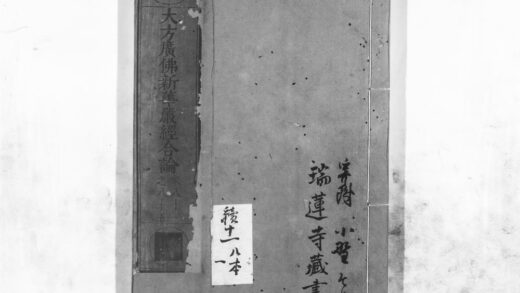 大方廣佛新華嚴經合論
寄附 小野
瑞蓮寺藏書
續十一 八本
一